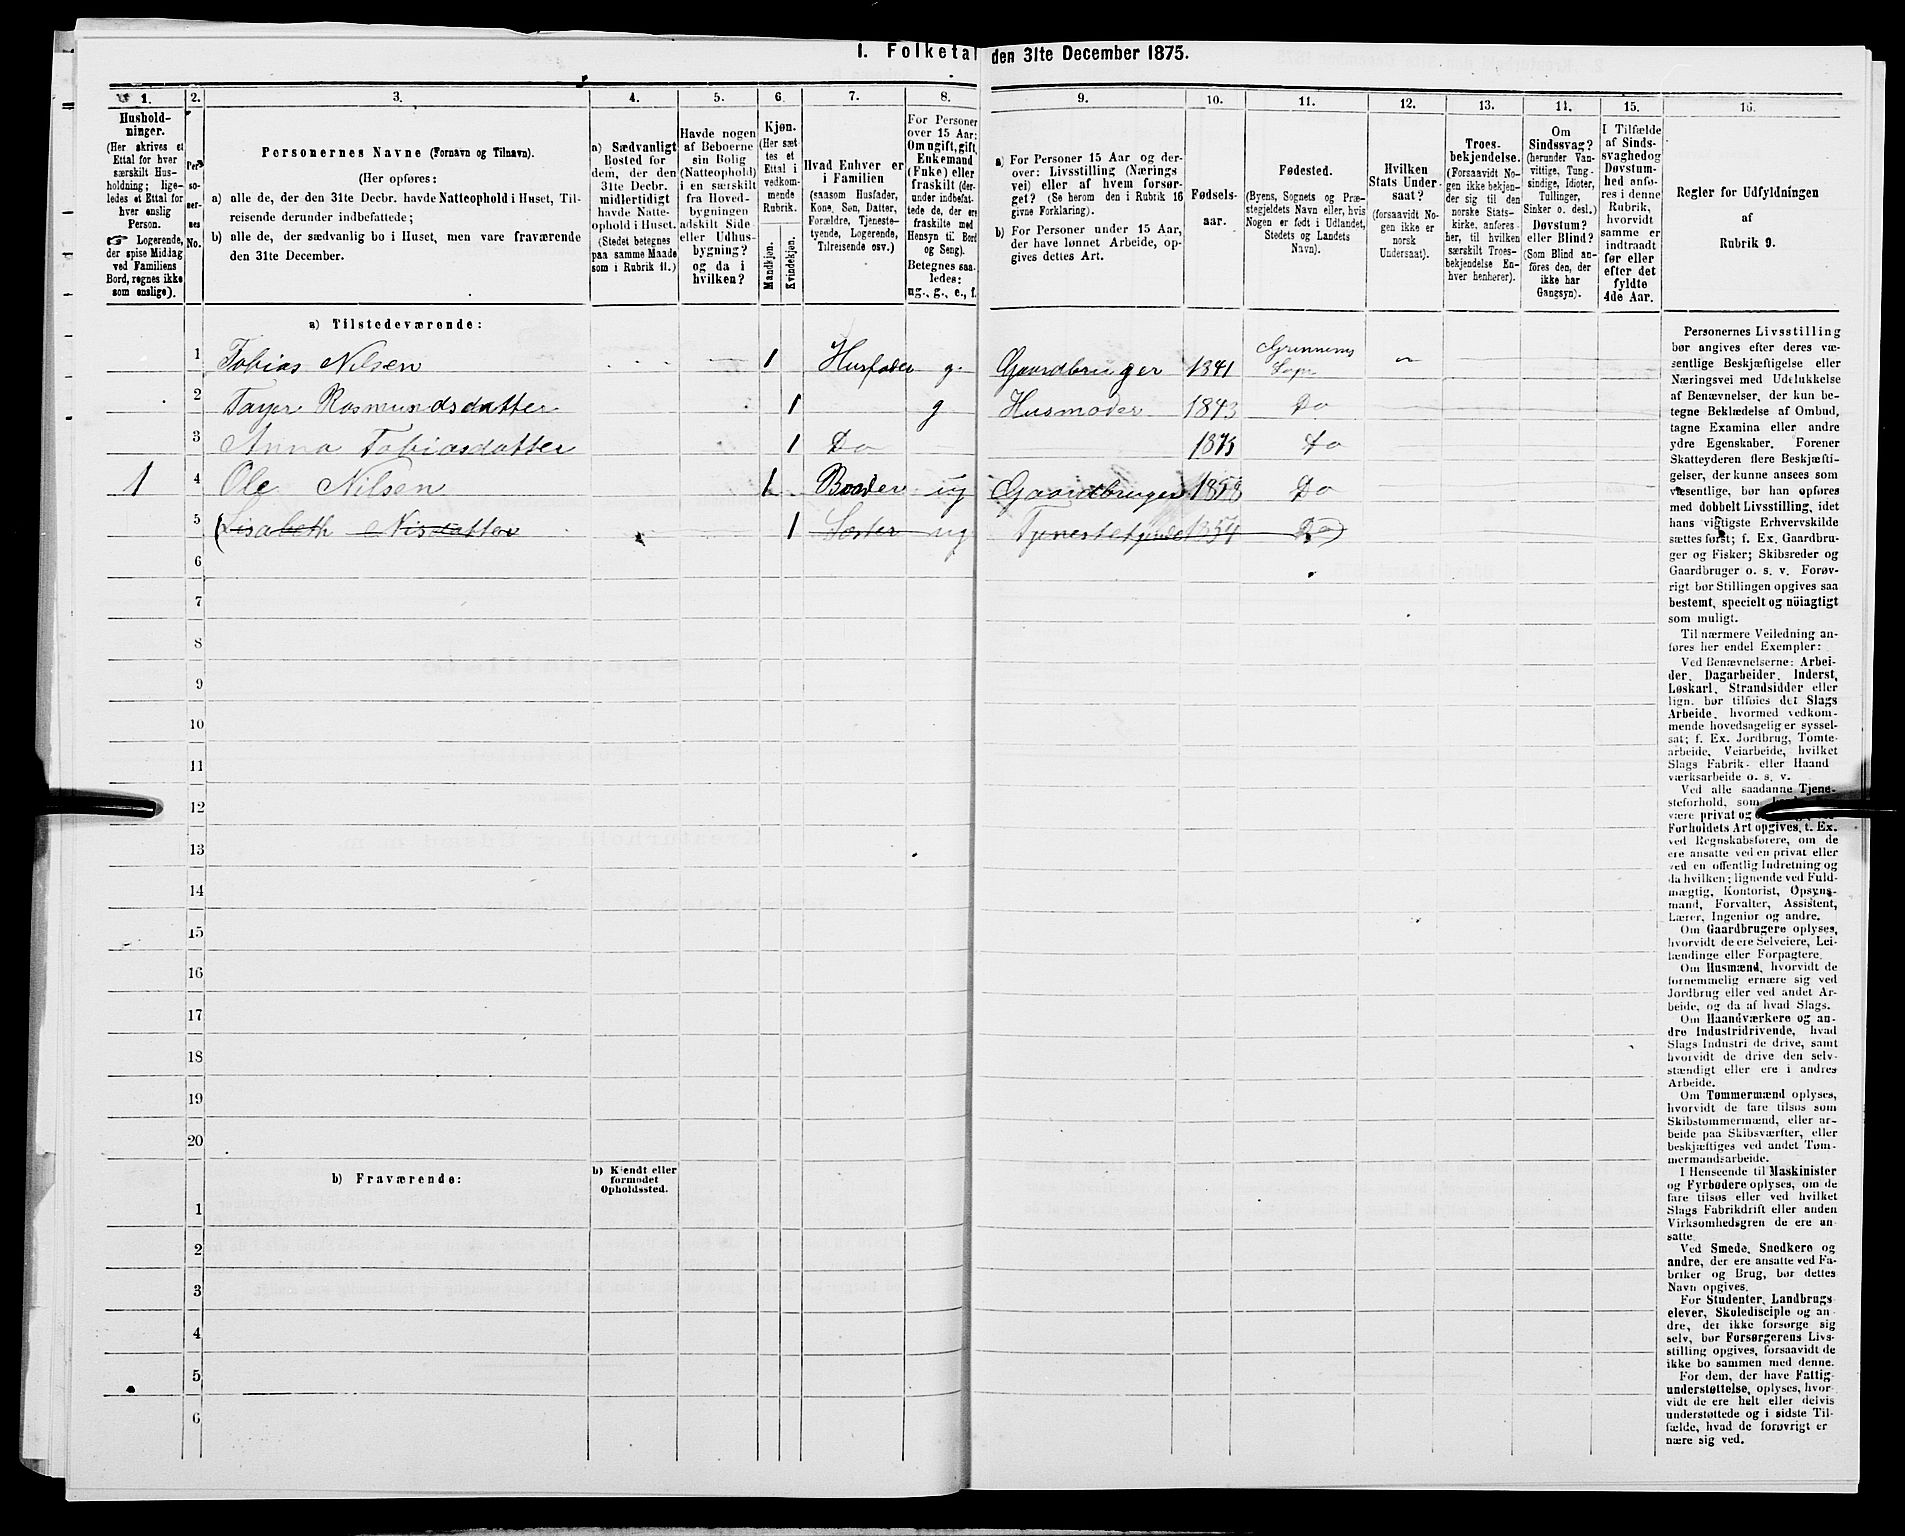 I. Folketal den 31te December 1875.
1. 2. 3. 4. 5. 6. 7. 8. 9. 10. 11. 12. 13. 14. 15. 16.
Hushold-
ninger.
(Her skrives et
Ettal for hver
særskilt Hus-
holdning; lige-
ledes et Ettal for
hver enslig
Person.
☞ Logerende,
der spise Middag
ved Familiens
Bord, regnes ikke
som enslige).
Per-
so-
ner-
nes
No.
Personernes Navne (Fornavn og Tilnavn).
(Her opføres:
a) alle de, der den 31te Decbr. havde Natteophold i Huset, Til-
reisende derunder indbefattede;
b) alle de, der sædvanlig bo i Huset, men vare fraværende
den 31te December.
a) Sædvanligt
Bosted for
dem, der den
31te Decbr.
midlertidigt
havde Natte-
ophold i Huset.
(Stedet betegnes
paa samme Maade
som i Rubrik 11.)
Havde nogen
af Beboerne
sin Bolig
(Natteophold)
i en særskilt
fra Hoved-
bygningen
adskilt Side-
eller Udhus-
bygning?
og da i
hvilken?
Kjøn.
(Her sæt
tes et
Ettal i
vedkom-
mende
Rubrik.
Mandkjøn.
Kvindekjøn.
Hvad Enhver er
i Familien
(saasom Husfader,
Kone, Søn, Datter,
Forældre, Tjeneste-
tyende, Logerende,
Tilreisende osv.)
For Personer
over 15 Aar:
Om ugift, gift,
Enkemand
(Enke) eller
fraskilt (der-
under indbefat-
tede de, der ere
fraskilte med
Hensyn til Bord
og Seng).
Betegnes saa-
ledes:
ug., g., e., f.
a) For Personer 15 Aar og der-
over: Livsstilling (Nærings
vei) eller af hvem forsør-
get? (Se herom den i Rubrik 16
givne Forklaring).
b) For Personer under 15 Aar,
der have lønnet Arbeide, op-
gives dettes Art.
Fødsels-
aar.
Fødested.
(Byens, Sognets og Præ-
stegjeldets Navn eller, hvis
Nogen er født i Udlandet,
Stedets og Landets
Navn).
Hvilken
Stats Under-
saat?
(forsaavidt No-
gen ikke er
norsk
Undersaat).
Troes-
bekjendelse.
(Forsaavidt No-
gen ikke bekjen-
der sig til den
norske Stats-
kirke, anføres
her, til hvilken
særskilt Troes-
bekjendelse En-
hver henhører).
Om
Sindssvag?
(herunder Van-
vittige, Tung-
sindige, Idioter,
Tullinger,
Sinker o. desl.)
Døvstum?
eller Blind?
(Som Blind an-
føres den, der
ikke har
Gangsyn).
I Tilfælde
af Sinds-
svaghed og
Døvstum-
hed anfø-
res i denne
Rubrik,
hvorvidt
samme er
indtraadt
før eller
efter det
fyldte
4de Aar.
Regler for Udfyldningen
af
Rubrik 9.
a) Tilstedeværende:
1 Tobias Nilsen 1 Husfader g. Gaardbruger 1841 Sogn
2 Rasmundsdatter 1 g Husmoder 1843 Do
3 Anna Tobiasdatter 1 Do 1875 Do
1 4 Ole Nilsen 1 Broder ug Gaardbruger 1858 Do
5 (Lisabeth Nisdatter 1 Søster ug Tjenestetyende 1854 Do)
6
7
8
9
10
11
12
13
14
15
16
17
18
19
20
b) Fraværende:
b) Kjendt eller
formodet
Opholdssted.
1
2
3
4
5
6
Personernes Livsstilling
bør angives efter deres væ-
sentlige Beskjæftigelse eller
Næringsvei med Udelukkelse
af Benævnelser, der kun be-
tegne Beklædelse af Ombud,
tagne Examina eller andre
ydre Egenskaber. Forener
Skatteyderen flere Beskjæfti-
gelser, der kunne ansees som
væsentlige, bør han opføres
med dobbelt Livsstilling, idet
hans vigtigste Erhvervskilde
sættes først; f. Ex. Gaardbru-
ger og Fisker; Skibsreder og
Gaardbruger o. s. v. Forøv-
rigt bør Stillingen opgives saa
bestemt, specielt og nöiagtigt
som muligt.
Til nærmere Veiledning an-
føres her endel Exempler:
Ved Benævnelserne: Arbei-
der, Dagarbeider, Inderst,
Løskarl, Strandsidder eller
lign. bør tilføies det Slags
Arbeide, hvormed vedkom-
mende hovedsagelig er syssel-
sat; f. Ex. Jordbrug, Tomte-
arbeide, Veiarbeide, hvilket
Slags Fabrik- eller Haand
værksarbeide o. s. v.
Ved alle saadanne Tjene-
steforhold, som
være privat og
Forholdets Art opgives, t. Ex.
ved Regnskabsførere, om de
ere ansatte ved en privat eller
ved en offentlig Indretning og
da hvilken; lignende ved Fuld-
mægtig, Kontorist, Opsyns-
mand, Forvalter, Assistent,
Lærer, Ingeniør og andre.
Om Gaardbrugere oplyses,
hvorvidt de ere Selveiere, Lei-
lændinge eller Forpagtere.
Om Husmænd, hvorvidt de
fornemmelig ernære sig ved
Jordbrug eller ved andet Ar-
beide, og da af hvad Slags.
Om Haandværkere og an-
dre Industridrivende, hvad
Slags Industri de drive, samt
hvorvidt de drive den selv-
stændigt eller ere i andres
Arbeide.
Om Tømmermænd oplyses,
hvorvidt de fare tilsøs som
Skibstømmermænd, eller ar-
beide paa Skibsværfter, eller
beskjæftiges ved andet Tøm-
mermandsarbeide.
I Henseende til Maskinister
og Fyrbødere oplyses, om de
fare tilsøs eller ved hvilket
Slags Fabrikdrift eller anden
Virksomhedsgren de ere an-
satte.
Ved Smede, Snedkere og
andre, der ere ansatte ved Fa-
briker og Brug, bør dettes
Navn opgives.
For Studenter, Landbrugs
elever, Skoledisciple og an
dre, der ikke forsørge sig
selv, bør Forsørgerens Livs-
stilling opgives, forsaavidt de
ikke bo sammen med denne.
For dem, der have Fattig-
understøttelse, oplyses, hvor-
vidt de ere helt eller delvis
understøttede og i sidste Til-
fælde, hvad de forøvrigt er
nære sig ved.